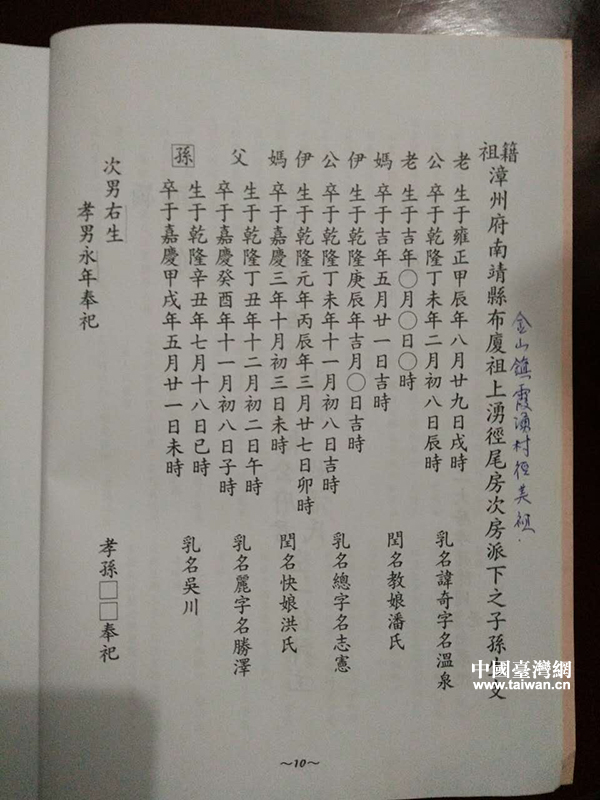 金山鎮霞湧村徑美祖.
祖籍漳州府南靖縣布廈祖上湧徑尾房次房派下之子孫
老 生于雍正甲辰年八月廿九日戌時
公 卒于乾隆丁未年二月初八日辰時
乳名諱奇字名溫泉
老 生于吉年〇月〇日〇時
媽 卒于吉年五月廿一日吉時
閏名教娘潘氏
伊 生于乾隆庚辰年吉月〇日吉時
公 卒于乾隆丁未年十一月初八日吉時
乳名總字名志憲
伊 生于乾隆元年丙辰年三月廿七日卯時
媽 卒于嘉慶三年十月初三日未時
閏名快娘洪氏
父 生于乾隆丁丑年十二月初二日午時
卒于嘉慶癸酉年十一月初八日子時
乳名麗字名勝澤
孫 生于乾隆辛丑年七月十八日巳時
卒于嘉慶甲戌年五月廿一日未時
乳名吳川
次男右生
孝男永年奉祀
孝孫□□奉祀
~10~
中國臺灣網
www.taiwan.cn